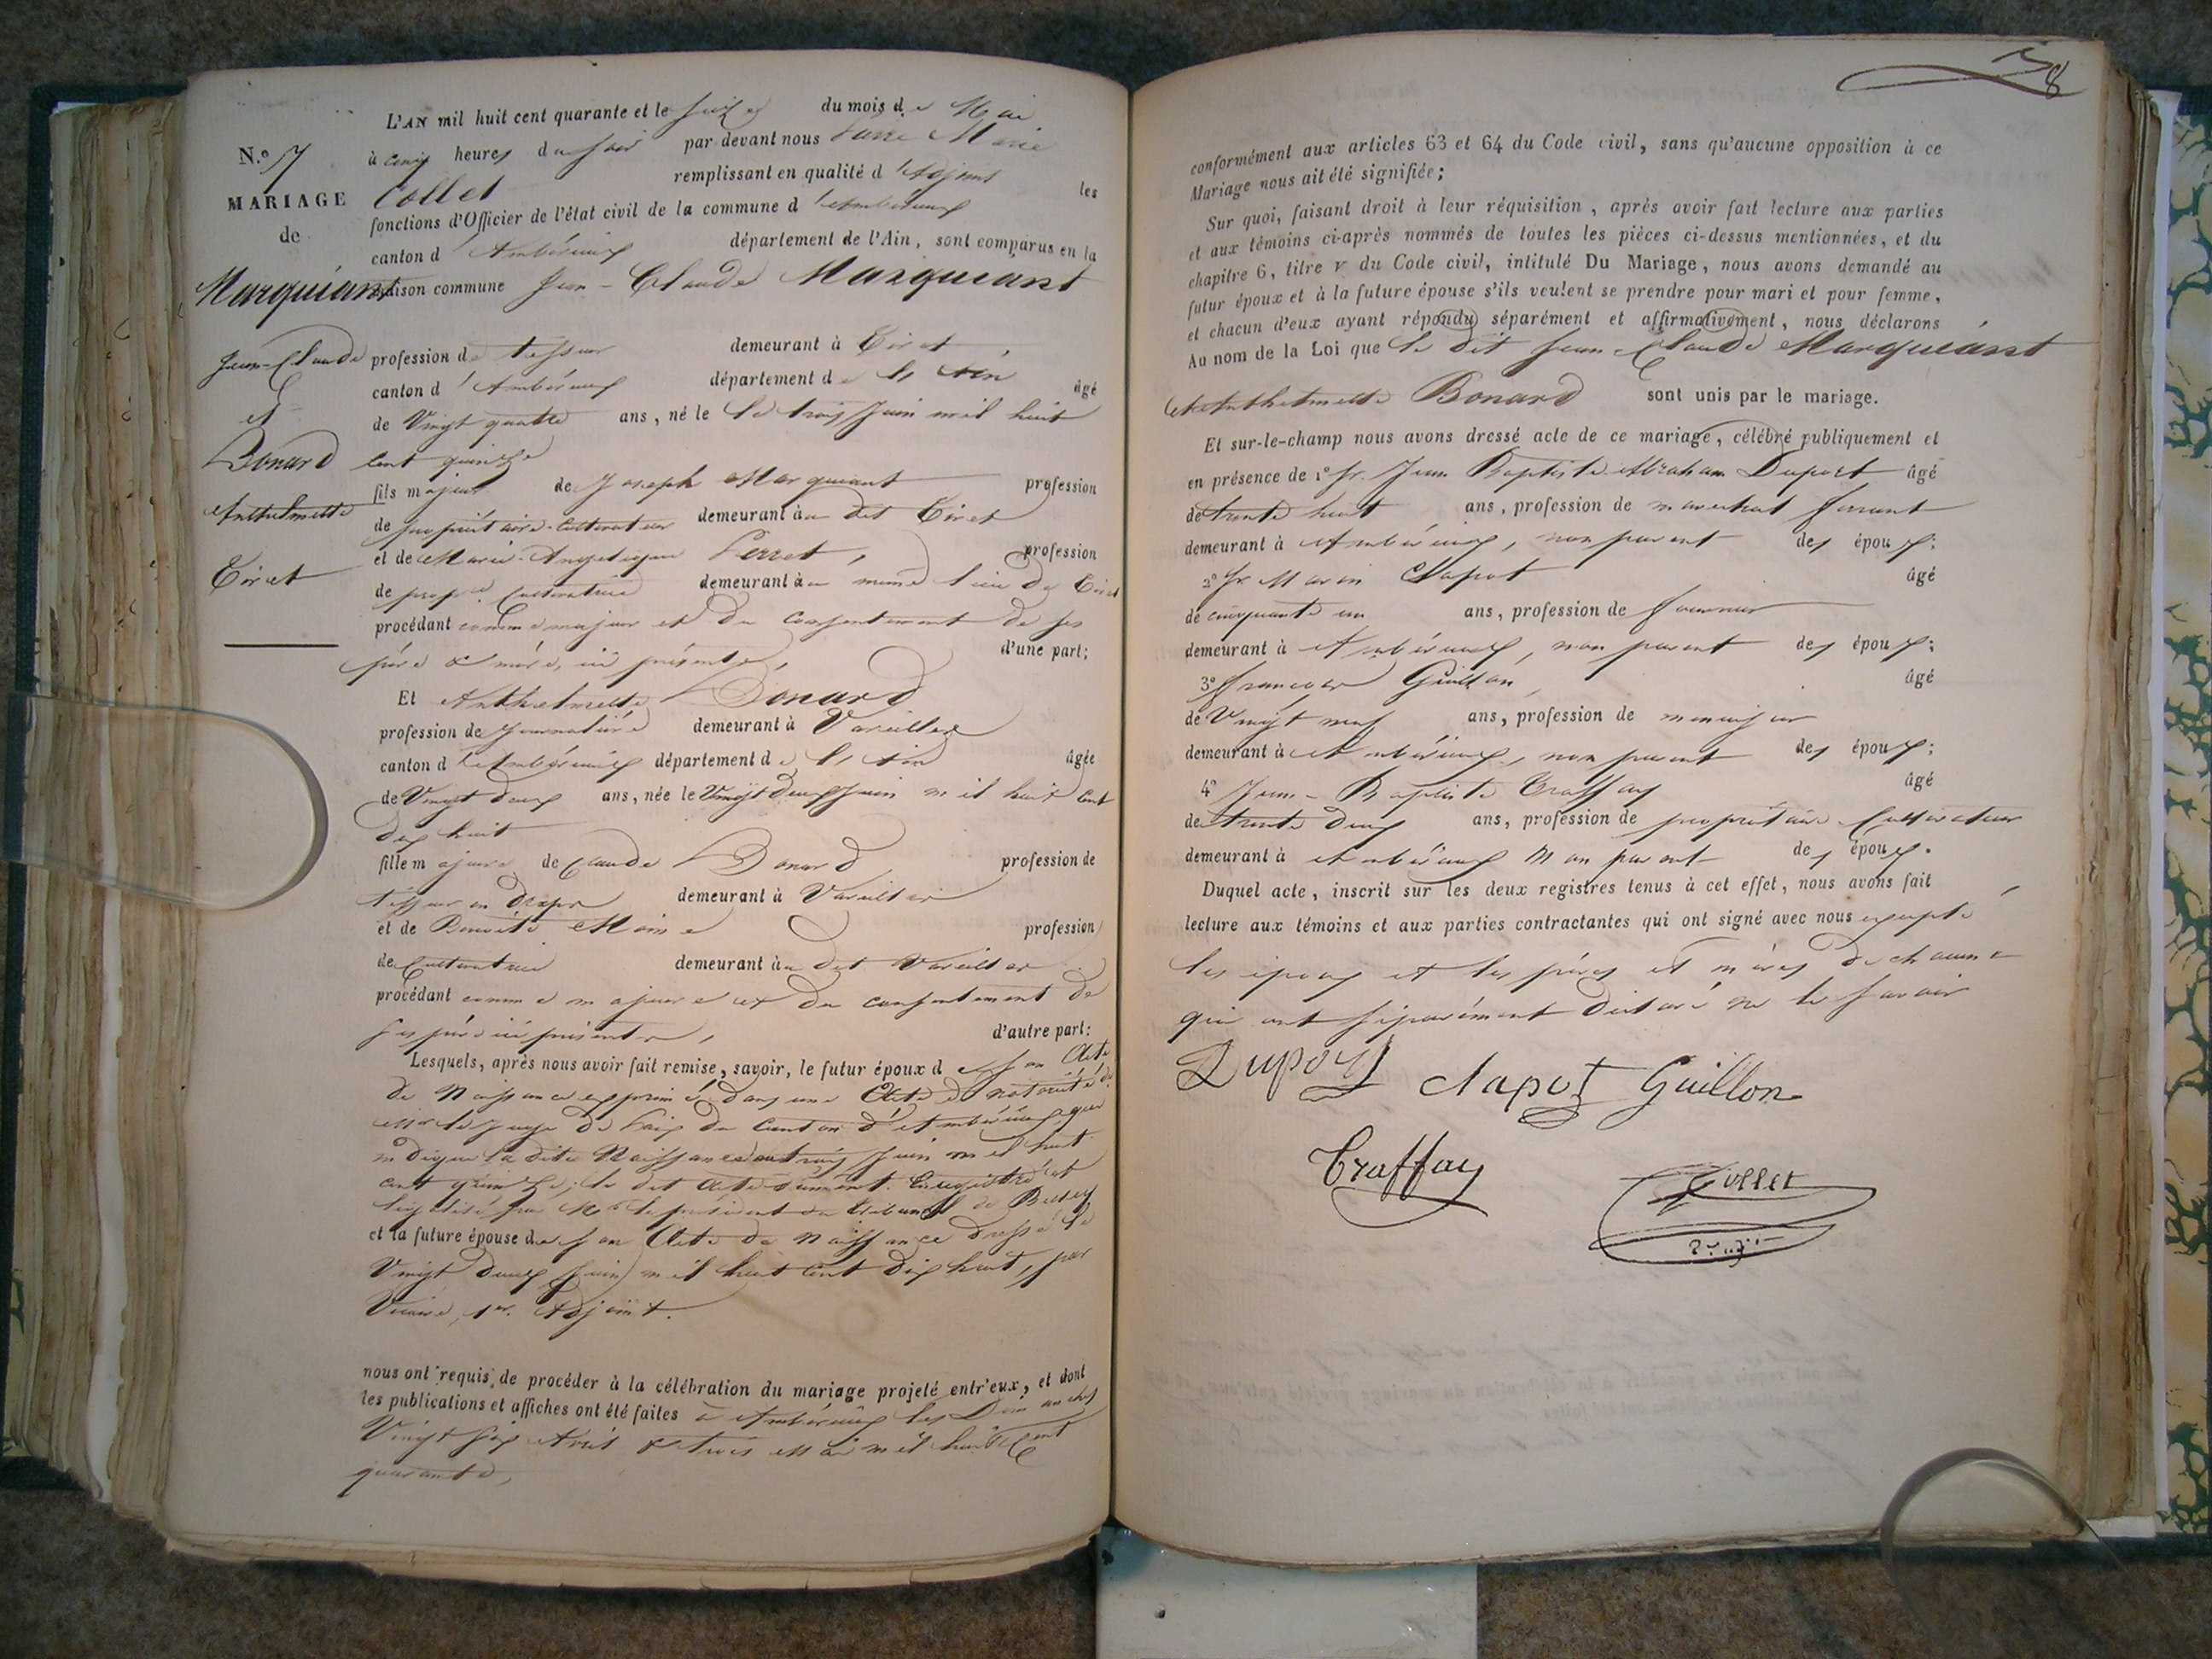 N.º 7
MARIAGE
de
Marquiant
Jean-Claude
et
Bonard
Anthelmette
Tiret
L'AN mil huit cent quarante et le seize du mois de Mai
à cinq heures du soir par devant nous Pierre Marie
Collet remplissant en qualité d'Adjoint les
fonctions d'Officier de l'état civil de la commune d'Ambérieux
canton d'Ambérieux département de l'Ain, sont comparus en la
maison commune Jean-Claude Marquiant
profession de tisseur demeurant à Tiret
canton d'Ambérieux département de l'Ain âgé
de Vingt quatre ans, né le le trois Juin mil huit
cent quinze
fils majeur de Joseph Marquiant profession
de propriétaire-cultivateur demeurant au dit Tiret
et de Marie-Angelique Perret, profession
de prop.re cultivatrice demeurant au même lieu de Tiret
procédant comme majeur et du consentement de ses
père & mère, ici présents, d'une part;
Et Anthelmette Bonard
profession de journalière demeurant à Vareilles
canton d'Ambérieux département de l'Ain âgée
de Vingt deux ans, née le Vingt deux Juin mil huit cent
dix huit
fille majeure de Claude Bonard profession de
tisseur en draps demeurant à Vareilles
et de Benoite profession
de cultivatrice demeurant au dit Vareilles
procédant comme majeure et du consentement de
ses père ici présents, d'autre part:
Lesquels, après nous avoir fait remise, savoir, le futur époux de son Acte
de Naissance exprimé dans une Acte de notoriété de
Mr le juge de Paix du Canton d'Ambérieux qui
indique la dite Naissance au trois Juin mil huit
cent quinze; le dit Acte dûment enregistré et
légalisé par Mr le président du tribunal de Belley
et la future épouse de son Acte de naissance dressé le
Vingt deux Juin mil huit cent dix huit, par
1er. Adjoint.
nous ont requis de procéder à la célébration du mariage projeté entr'eux, et dont
les publications et affiches ont été faites à Ambérieux les Dimanches
Vingt six Avril & trois Mai mil huit cent
quarante,
8
conformément aux articles 63 et 64 du Code civil, sans qu'aucune opposition à ce
Mariage nous ait été signifiée;
Sur quoi, faisant droit à leur réquisition, après avoir fait lecture aux parties
et aux témoins ci-après nommés de toutes les pièces ci-dessus mentionnées, et du
chapitre 6, titre v du Code civil, intitulé Du Mariage, nous avons demandé au
futur époux et à la future épouse s'ils veulent se prendre pour mari et pour femme,
et chacun d'eux ayant répondu séparément et affirmativement, nous déclarons
Au nom de la Loi que le dit Jean-Claude Marquiant
et Anthelmette Bonard sont unis par le mariage.
Et sur-le-champ nous avons dressé acte de ce mariage, célébré publiquement et
en présence de 1º Sr. Jean Baptiste Abraham Duport âgé
de trente huit ans, profession de marechal ferrant
demeurant à Ambérieux, non parent des époux;
2º Sr Marin Clapot âgé
de cinquante un ans, profession de fournier
demeurant à Ambérieux, non parent des époux;
3º François Guillon, âgé
de Vingt neuf ans, profession de menuisier
demeurant à Ambérieux, non parent des époux;
4º Jean-Baptiste Traffay âgé
de trente deux ans, profession de propriétaire cultivateur
demeurant à Ambérieux non parent des époux.
Duquel acte, inscrit sur les deux registres tenus à cet effet, nous avons fait
lecture aux témoins et aux parties contractantes qui ont signé avec nous excepté
les époux et les pères et mères de chacun
qui ont séparément déclaré ne le savoir
Duport Clapot Guillon
Traffay Collet